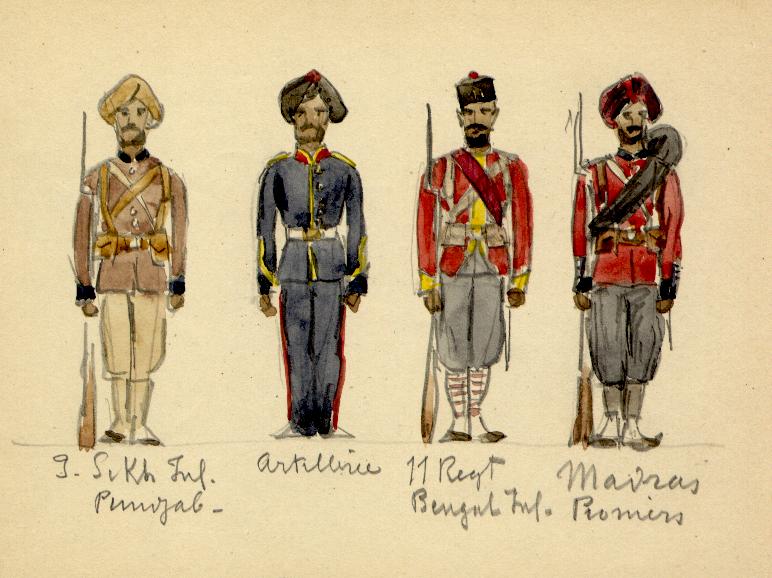 3. Sikh Inf.
Pundjab -
Artillerie
11 Regt
Bengal Inf.
Madras
Pioniers